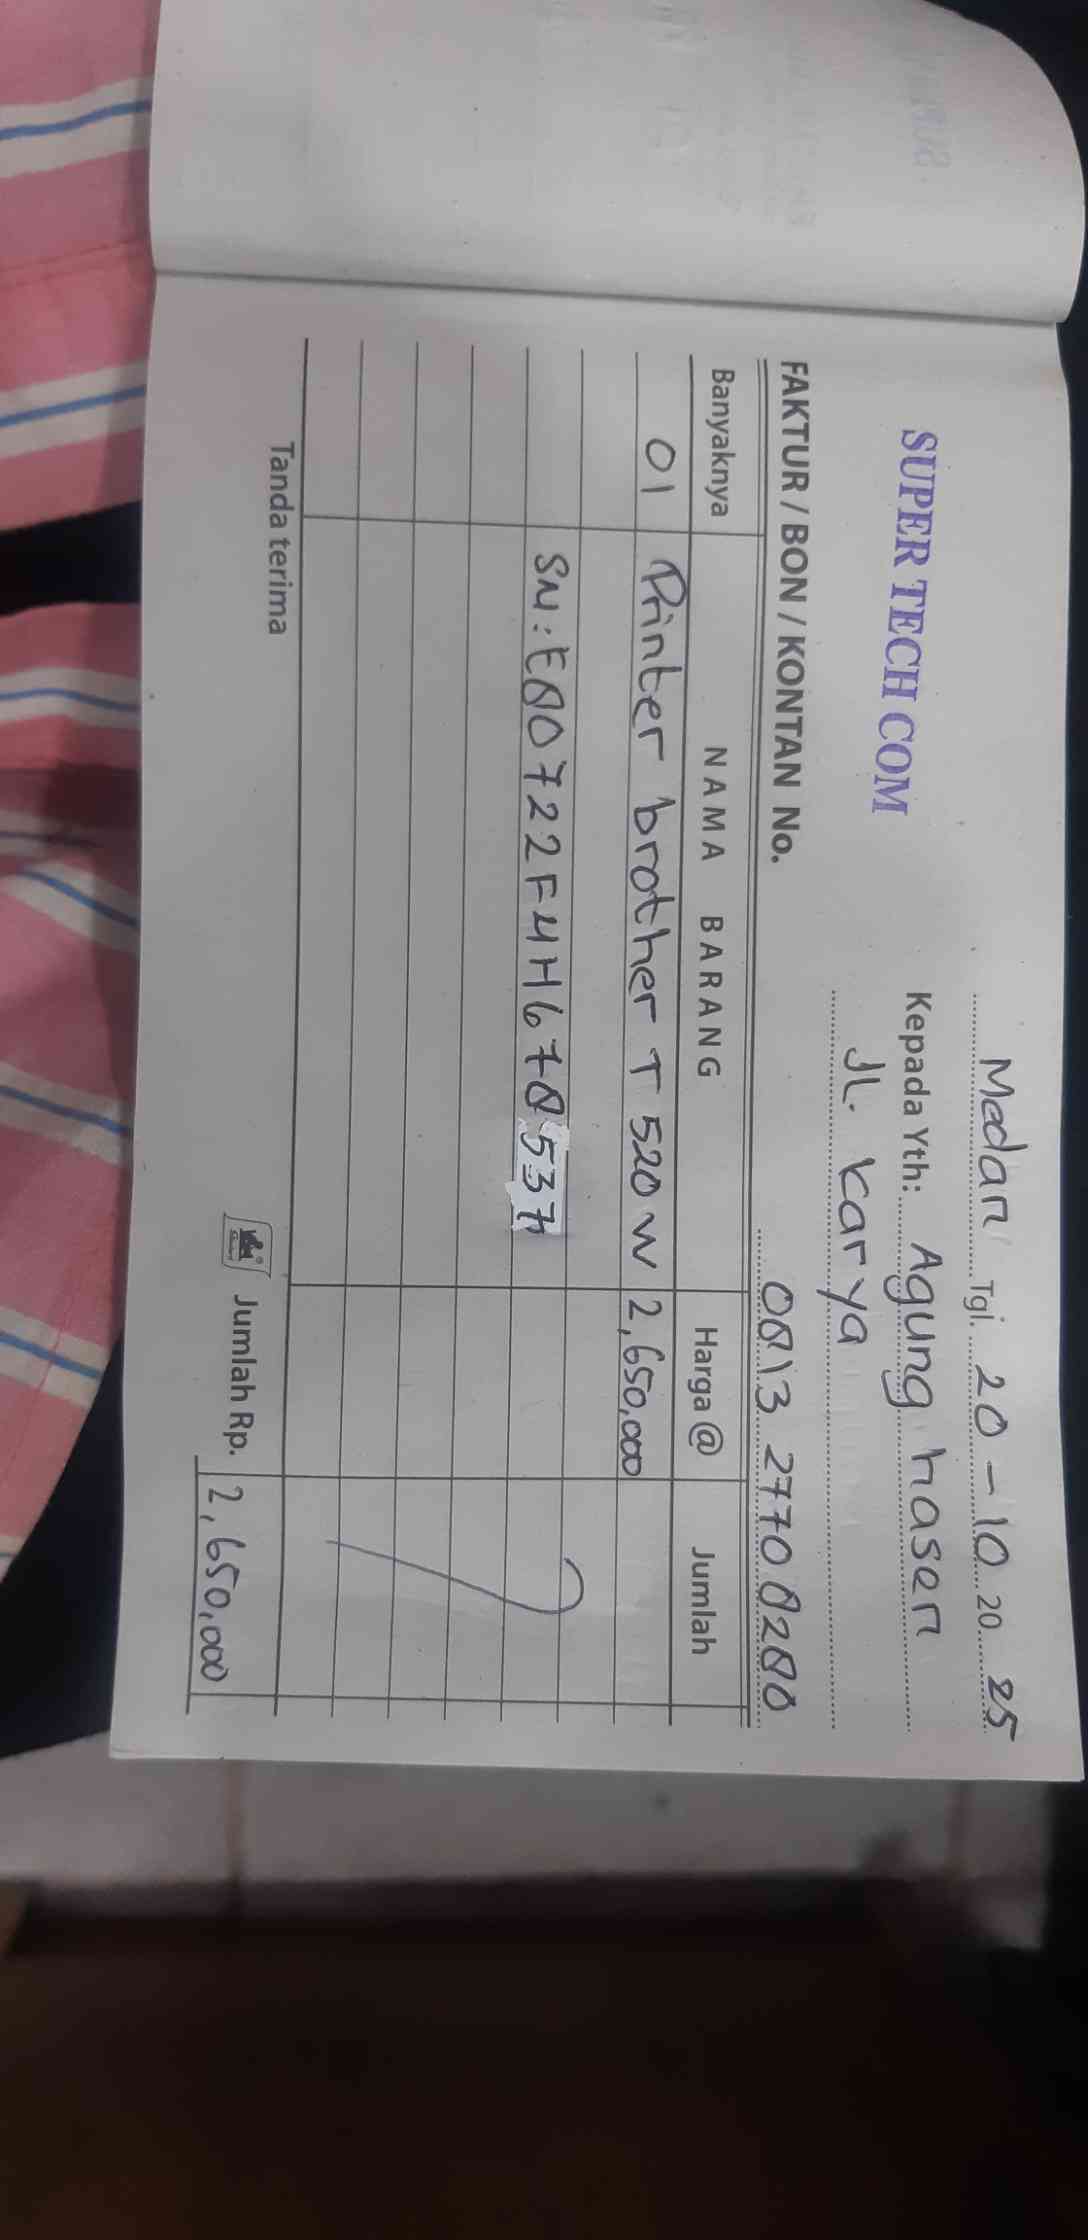 Medan Tgl. 20 - 10 20 25
SUPER TECH COM
Kepada Yth: Agung hasan
JL. Karya
0813 2770 8280
FAKTUR / BON / KONTAN No.
Banyaknya NAMA BARANG Harga @ Jumlah
01 Printer brother T 520 W 2,650,000
SN: E80722F4H678537
Tanda terima Jumlah Rp. 2,650,000